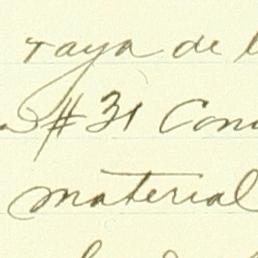 raya de l
#31 Con
material